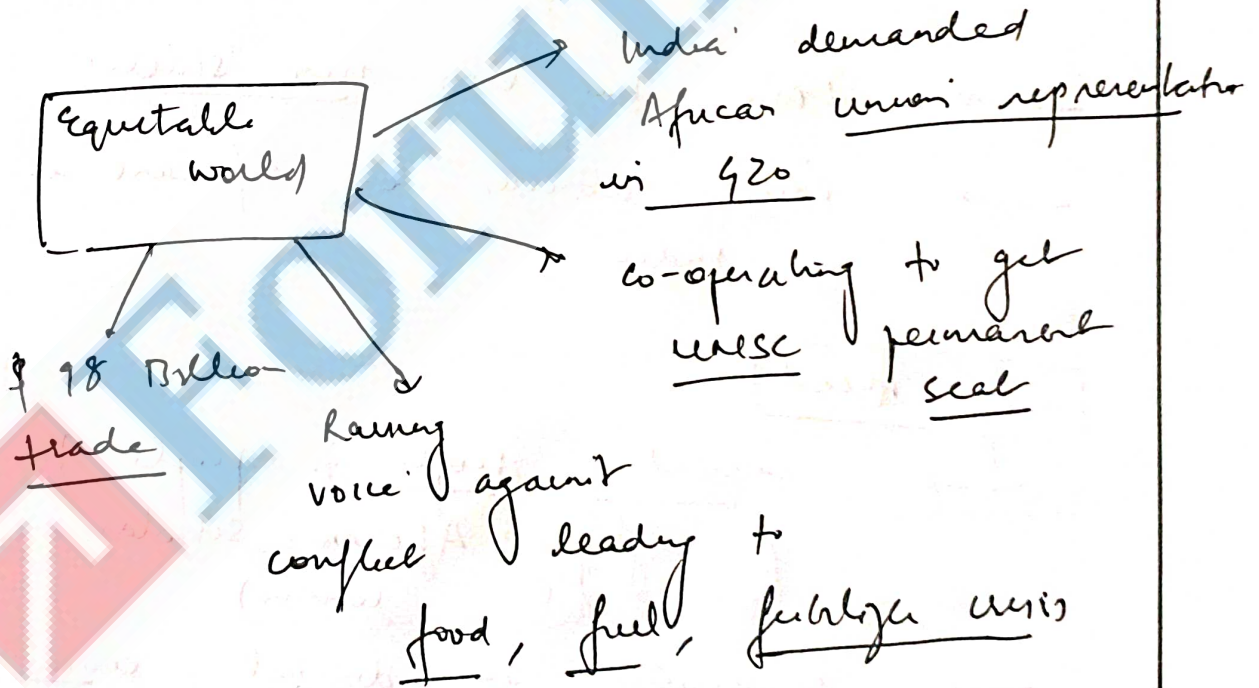 Equitable
world
India demanded
African union representation
in G20
co-operating to get
UNSC permanent
seat
$ 98 Billion
trade
Raising
voice against
conflict leading to
food, fuel, fertilizer crisis
Forum